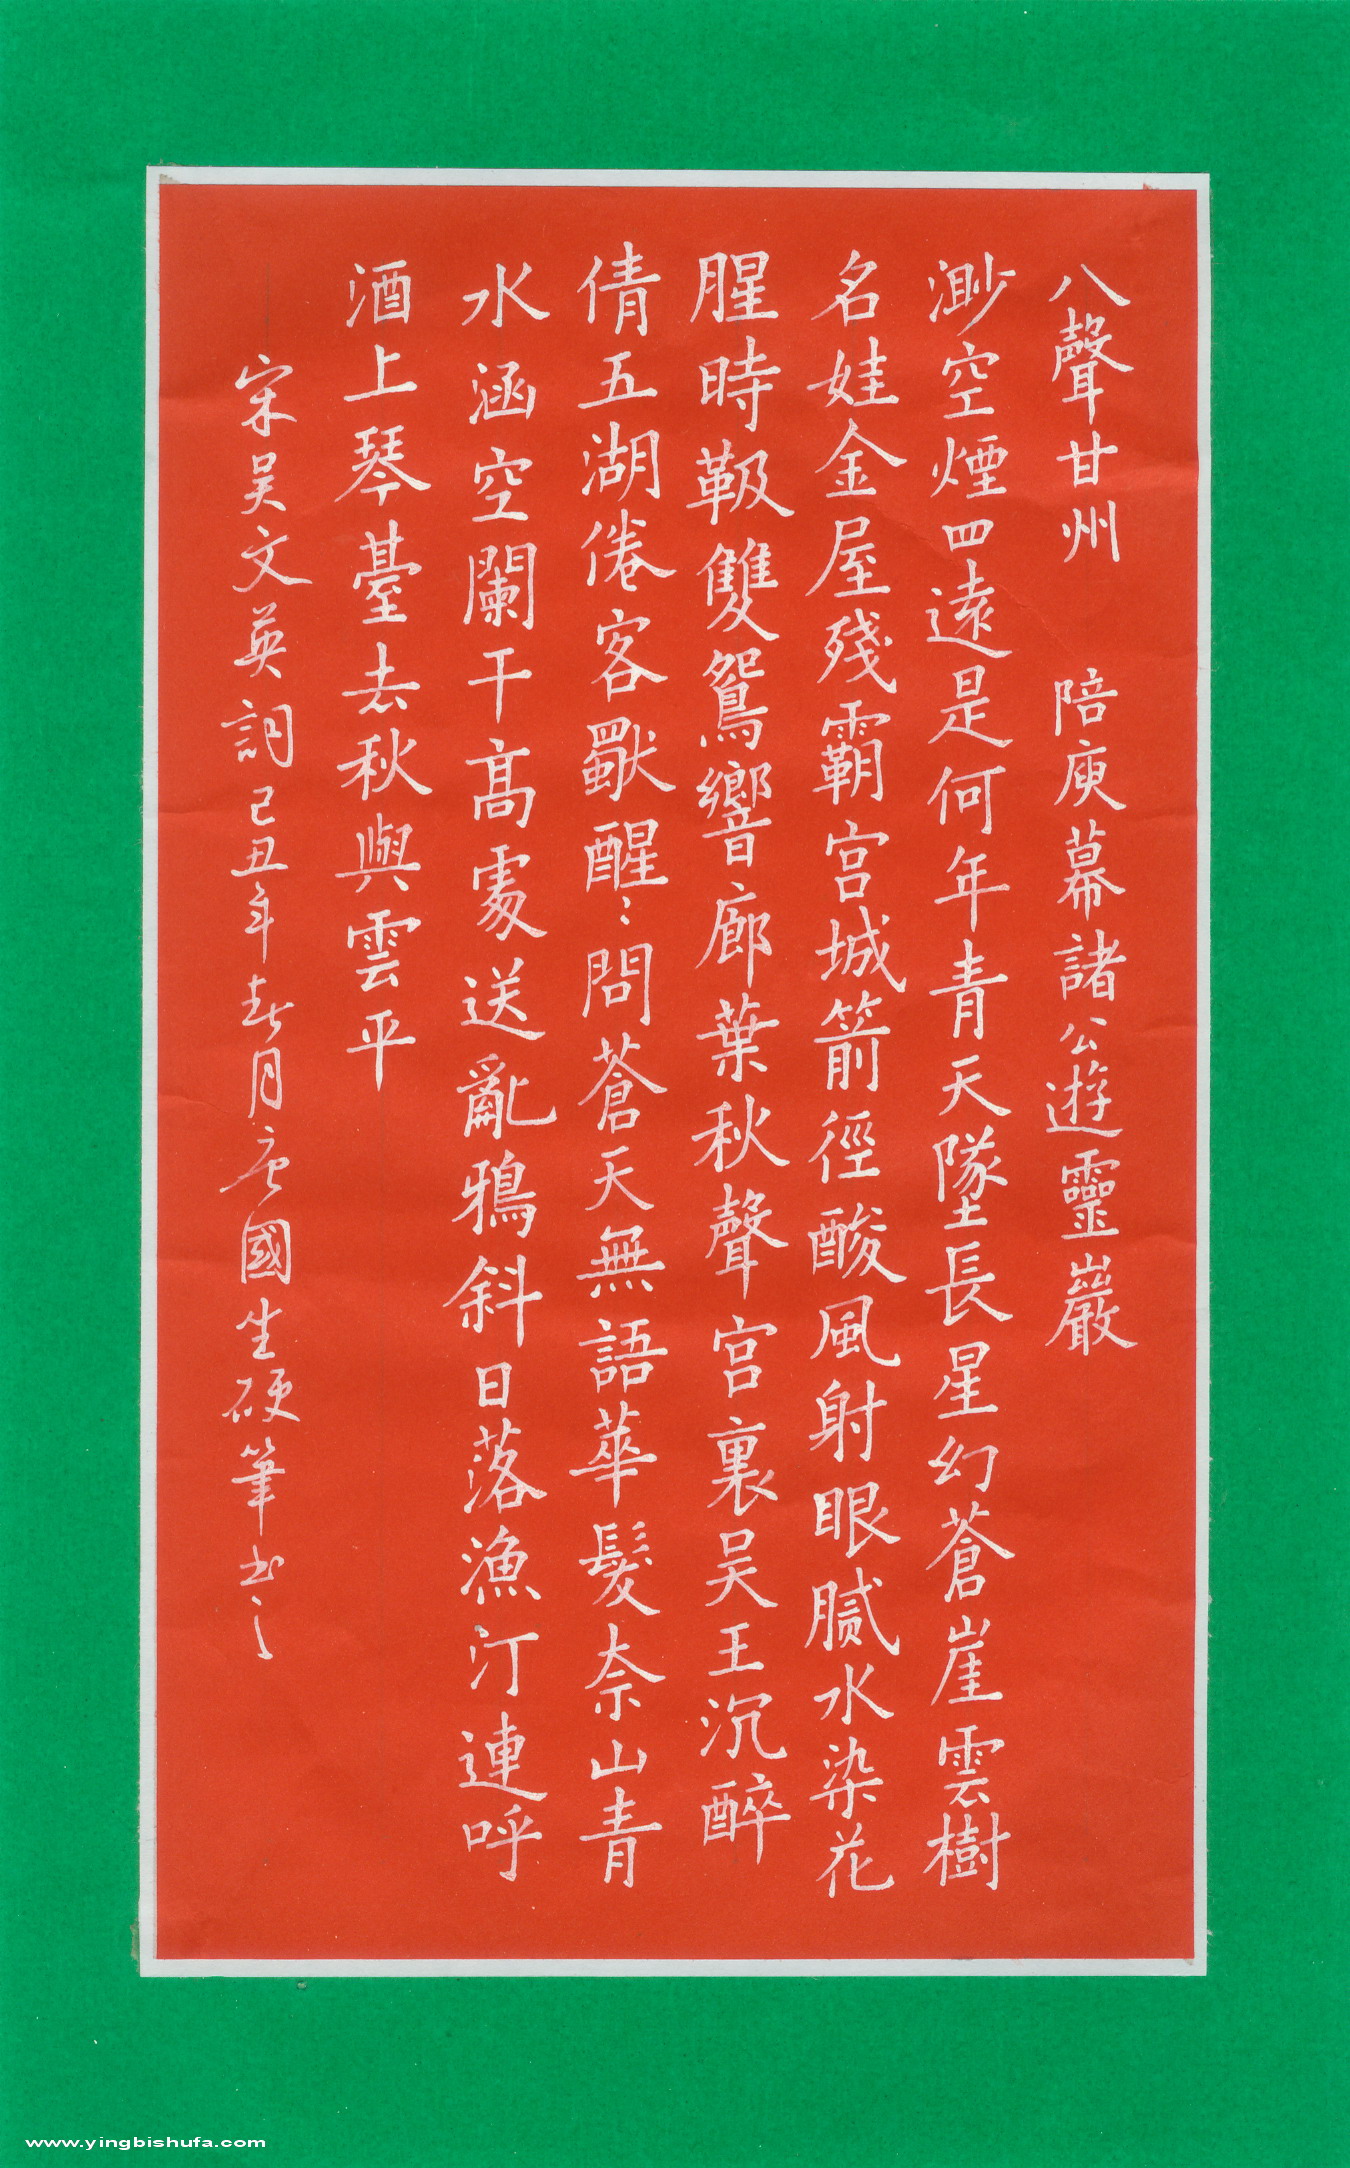 八聲甘州 陪庾幕諸公遊靈巖
渺空煙四遠是何年青天墜長星幻蒼崖雲樹
名娃金屋殘霸宮城箭徑酸風射眼膩水染花
腥時靸雙鴛響廊葉秋聲宮裏吳王沉醉
倩五湖倦客獨醒醒問蒼天無語華髮奈山青
水涵空闌干高處送亂鴉斜日落漁汀連呼
酒上琴臺去秋與雲平
宋吳文英詞己丑年春月唐國生硬筆書之
www.yingbishufa.com